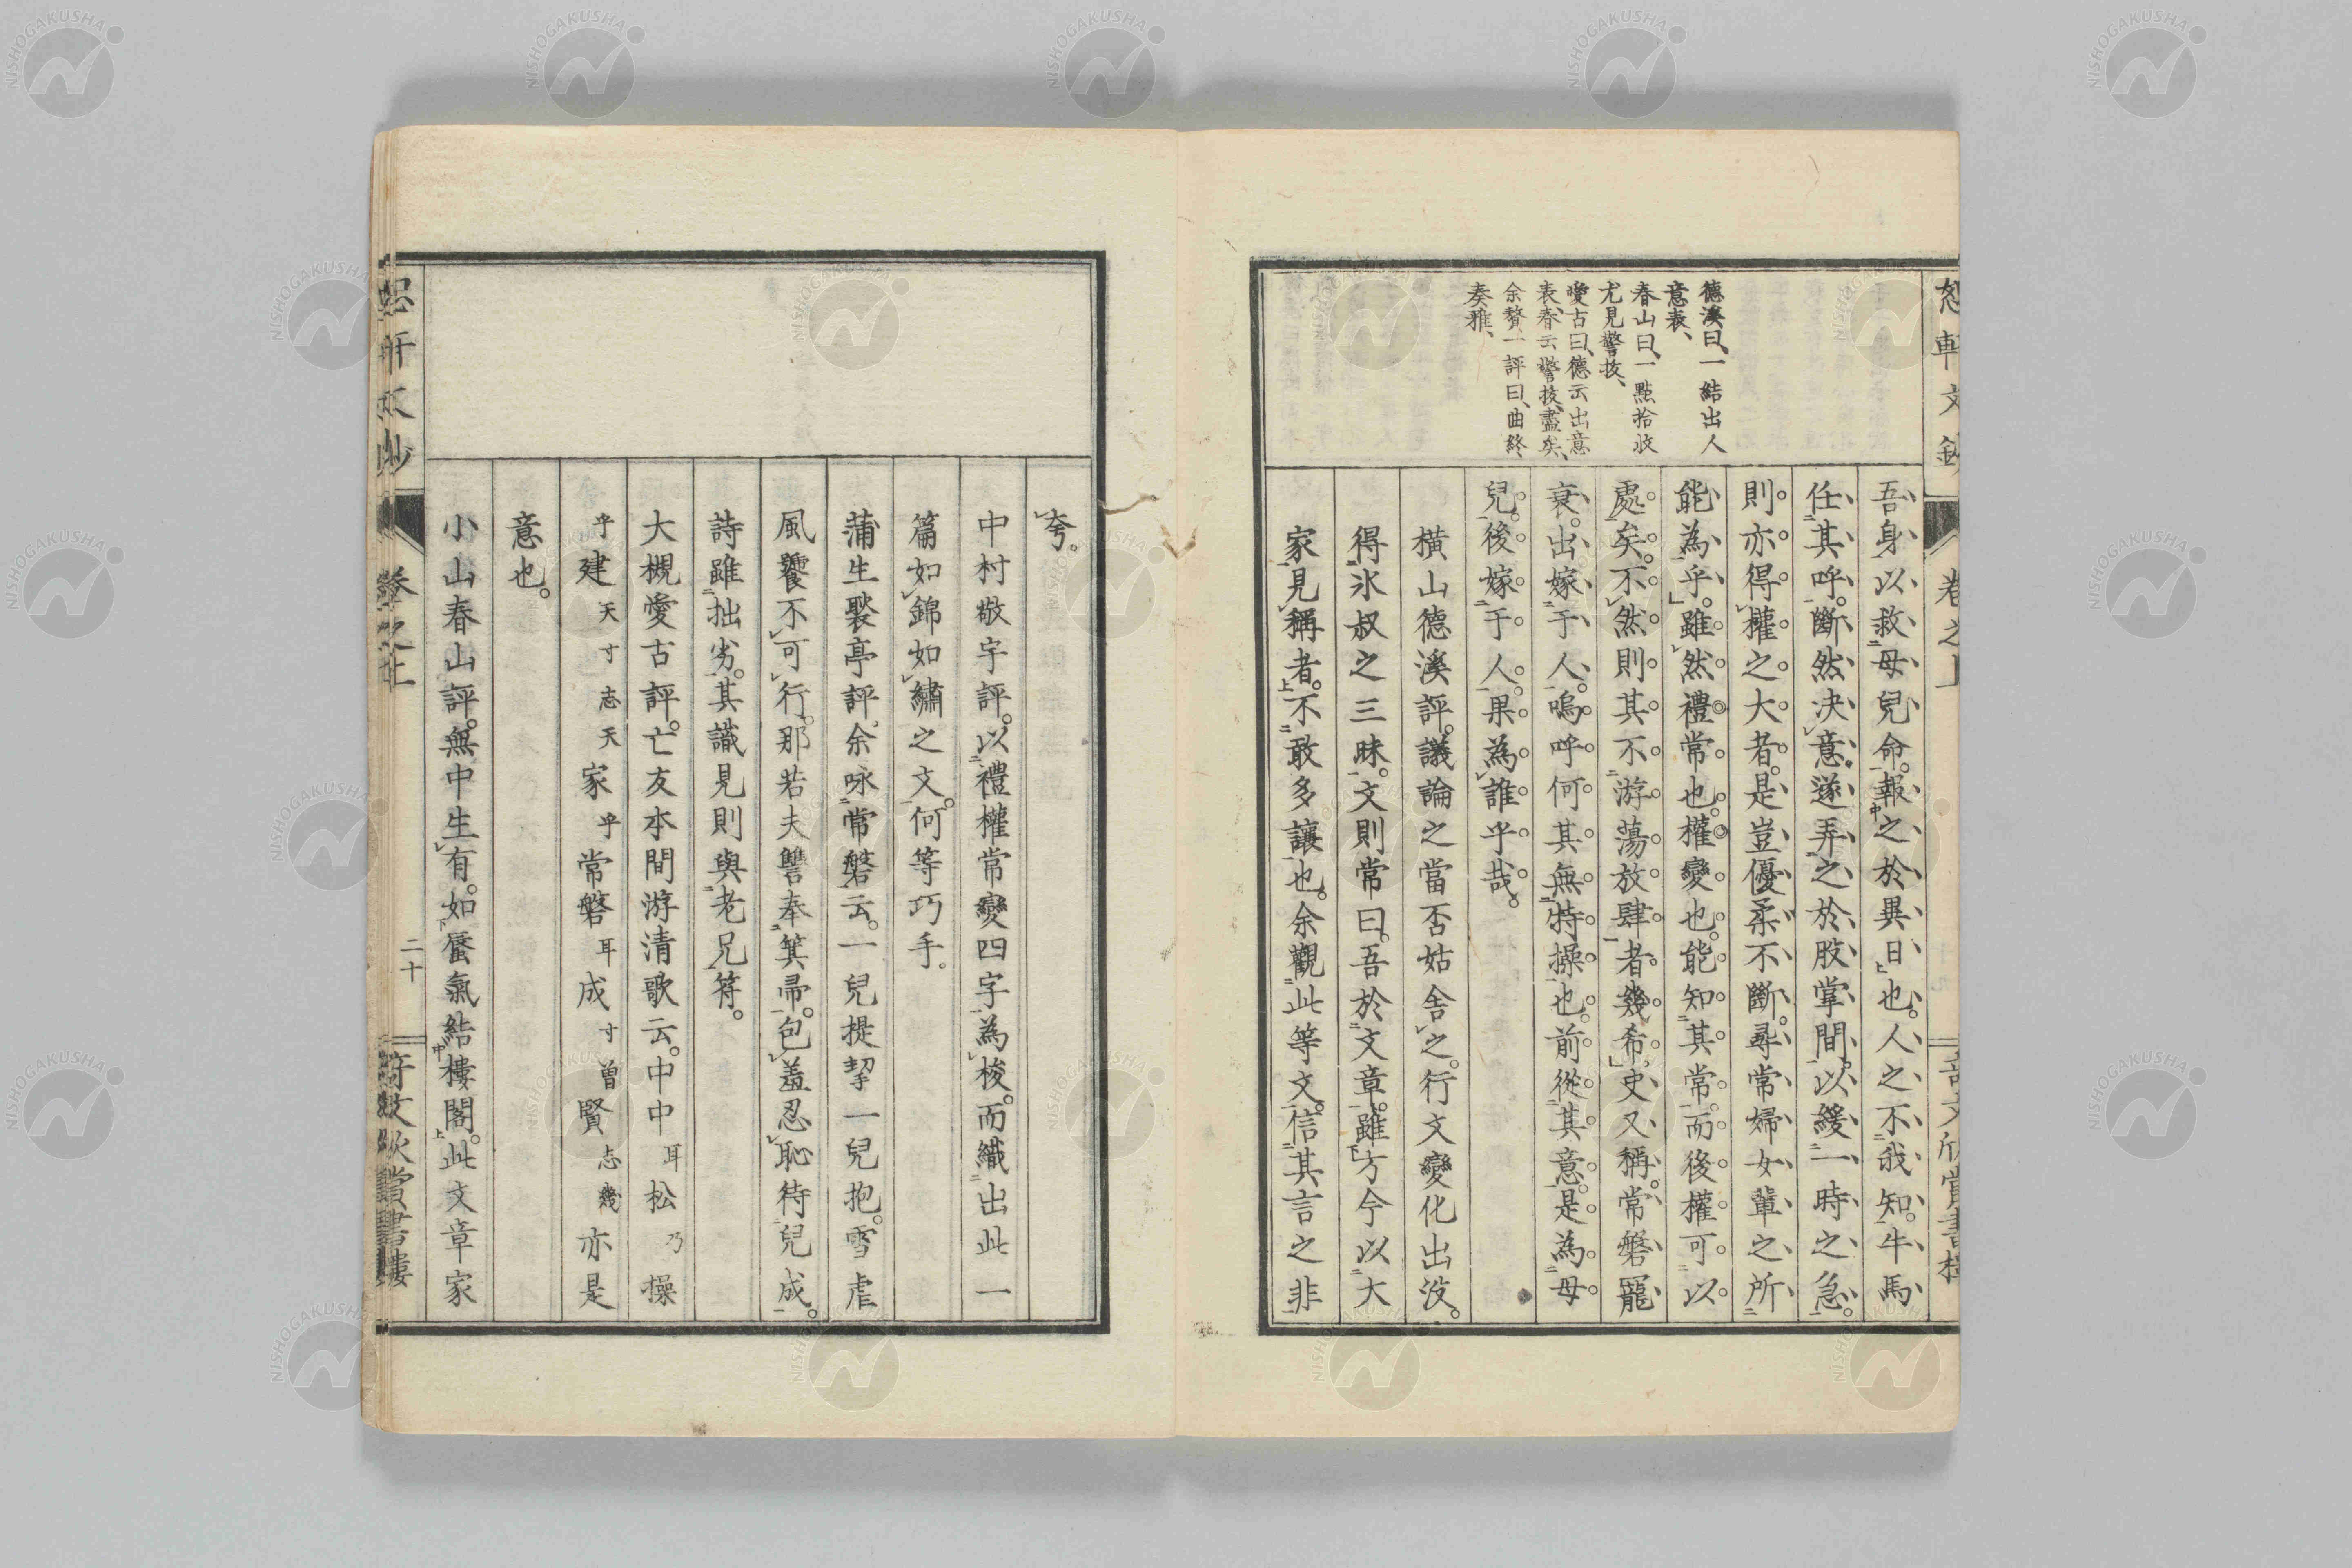 德溪曰、一結出人
意表、
春山曰、一點拾收
尤見警拔、
愛古曰、德云出意
表、春云警拔、盡矣、
余贅一評曰、曲終
奏雅、
吾身以救母兒命。報之於異日也。人之不我知。牛馬
任其呼。斷然決意。遂弄之於股掌間。以緩一時之急。
則亦得權之大者。是豈優柔不斷。尋常婦女輩之所
能為乎。雖然禮常也。權變也。能知其常。而後權可以
處矣。不然則其不游蕩放肆者幾希。史又稱。常磐寵
衰。出嫁于人。嗚呼何其無特操也。前從其意。是為母
兒。後嫁于人。果為誰乎哉。
橫山德溪評。議論之當否姑舍之。行文變化出沒。
得氷叔之三昧。文則常曰。吾於文章。雖方今以大
家見稱者。不敢多讓也。余觀此等文。信其言之非
夸。
中村敬宇評。以禮權常變四字為梭。而織出此一
篇如錦如繡之文。何等巧手。
蒲生褧亭評。余咏常磐云。一兒提挈一兒抱。雪虐
風饕不可行。那若夫讐奉箕帚。包羞忍恥待兒成。
詩雖拙劣。其識見則與老兄符。
大槻愛古評。亡友本間游清歌云。中中耳松乃操
乎建天寸志天家乎常磐耳成寸曽賢志幾亦是
意也。
小山春山評。無中生有。如蜃氣結樓閣。此文章家
卷之上
二十
奇文欣賞書樓
NISHOGAKUSHA